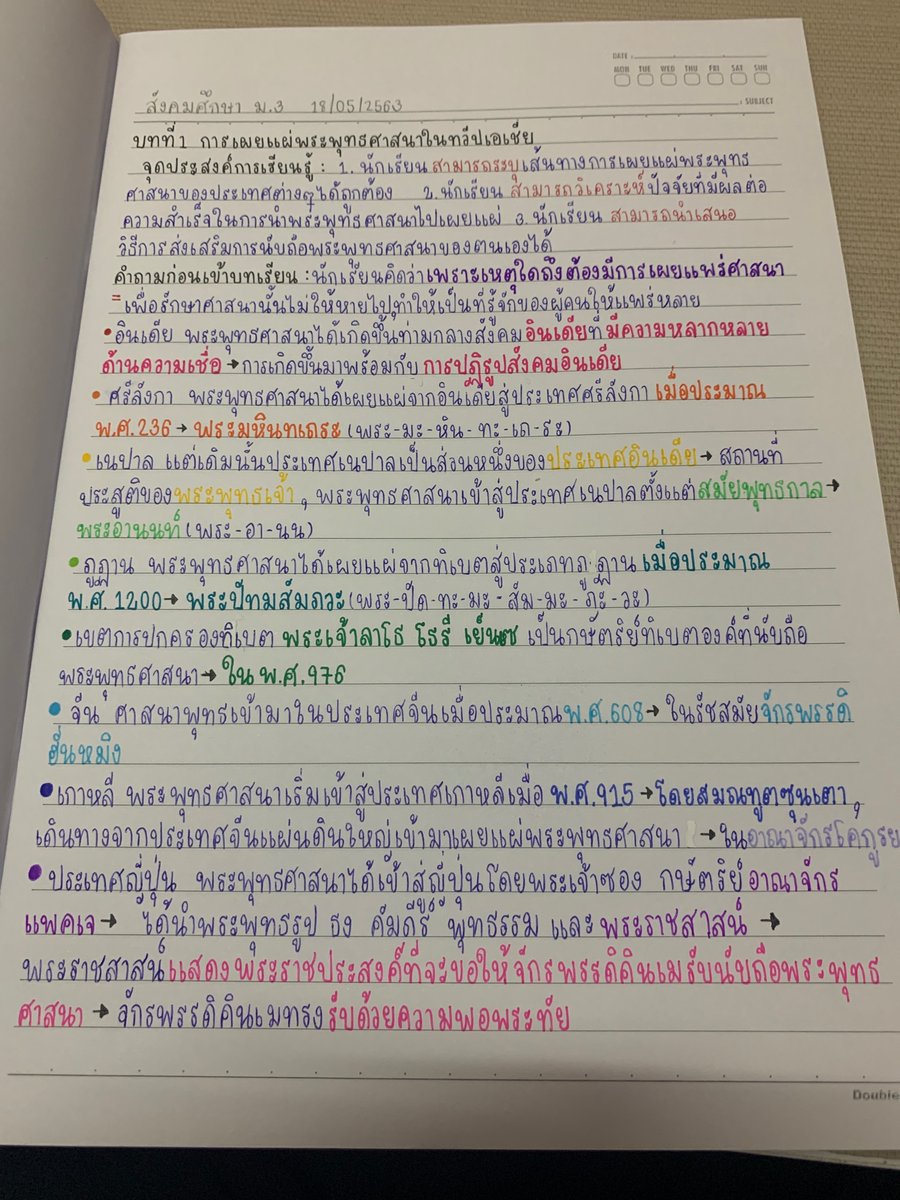 DATE :
MON TUE WED THU FRI SAT SUN
สังคมศึกษา ม.3 18/05/2563 : SUBJECT
บทที่1 การเผยแผ่พระพุทธศาสนาในทวีปเอเชีย
จุดประสงค์การเรียนรู้ : 1. นักเรียน สามารถระบุเส้นทางการเผยแผ่พระพุทธ
ศาสนาของประเทศต่างๆได้ถูกต้อง 2. นักเรียน สามารถวิเคราะห์ปัจจัยที่มีผลต่อ
ความสำเร็จในการนำพระพุทธศาสนาไปเผยแผ่ 3. นักเรียน สามารถนำเสนอ
วิธีการส่งเสริมการนับถือพระพุทธศาสนาของตนเองได้
คำถามก่อนเข้าบทเรียน : นักเรียนคิดว่าเพราะเหตุใดถึงต้องมีการเผยแพร่ศาสนา
= เพื่อรักษาศาสนานั้นไม่ให้หายไป,ทำให้เป็นที่รู้จักของผู้คนให้แพร่หลาย
• อินเดีย พระพุทธศาสนาได้เกิดขึ้นท่ามกลางสังคมอินเดียที่มีความหลากหลาย
ด้านความเชื่อ → การเกิดขึ้นมาพร้อมกับ การปฏิรูปสังคมอินเดีย
• ศรีลังกา พระพุทธศาสนาได้เผยแผ่จากอินเดียสู่ประเทศศรีลังกา เมื่อประมาณ
พ.ศ.236 → พระมหินทเถระ (พระ-มะ-หิน-ทะ-เถ-ระ)
• เนปาล แต่เดิมนั้นประเทศเนปาลเป็นส่วนหนึ่งของประเทศอินเดีย → สถานที่
ประสูติของพระพุทธเจ้า , พระพุทธศาสนาเข้าสู่ประเทศเนปาลตั้งแต่สมัยพุทธกาล →
พระอานนท์ (พระ-อา-นน)
• ภูฏาน พระพุทธศาสนาได้เผยแผ่จากทิเบตสู่ประเภทภูฏาน เมื่อประมาณ
พ.ศ. 1200 → พระปัทมสัมภวะ (พระ-ปัด-ทะ-มะ-สัม-มะ-ภะ-วะ)
• เขตการปกครองทิเบต พระเจ้าลาโธ โธรี เย็นเซ เป็นกษัตริย์ทิเบตองค์ที่นับถือ
พระพุทธศาสนา → ใน พ.ศ.976
• จีน ศาสนาพุทธเข้ามาในประเทศจีนเมื่อประมาณ พ.ศ.608 → ในรัชสมัยจักรพรรดิ
ฮั่นหมิง
• เกาหลี พระพุทธศาสนาเริ่มเข้าสู่ประเทศเกาหลีเมื่อ พ.ศ.915 → โดยสมณทูตซุนเตา ,
เดินทางจากประเทศจีนแผ่นดินใหญ่เข้ามาเผยแผ่พระพุทธศาสนา → ในอาณาจักรโคกูรยอ
• ประเทศญี่ปุ่น พระพุทธศาสนาได้เข้าสู่ญี่ปุ่นโดยพระเจ้าซอง กษัตริย์ อาณาจักร
แพคเจ → ได้นำพระพุทธรูป ธง คัมภีร์ พุทธธรรม และ พระราชสาสน์ →
พระราชสาสน์แสดงพระราชประสงค์ที่จะขอให้จักรพรรดิคินเมรับนับถือพระพุทธ
ศาสนา → จักรพรรดิคินเมทรงรับด้วยความพอพระทัย
Double